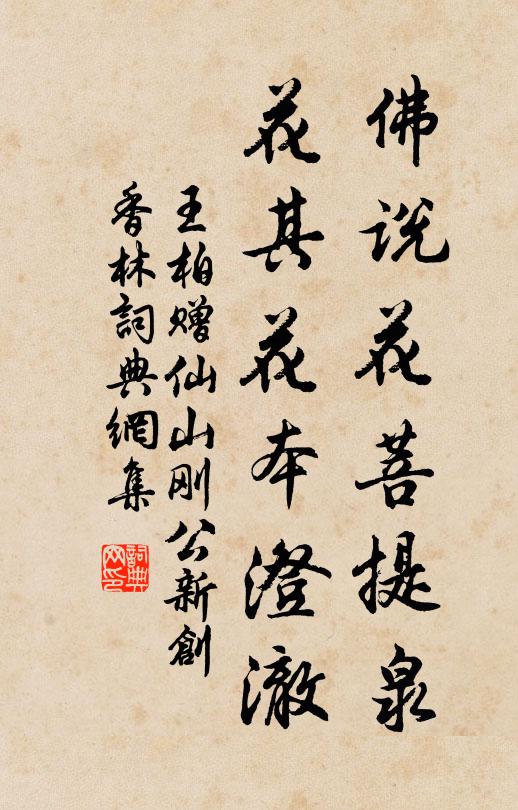 佛说花菩提泉
花其花本澄澈
王柏赠仙山刚公新創
香林詞典網集
詞典
网印